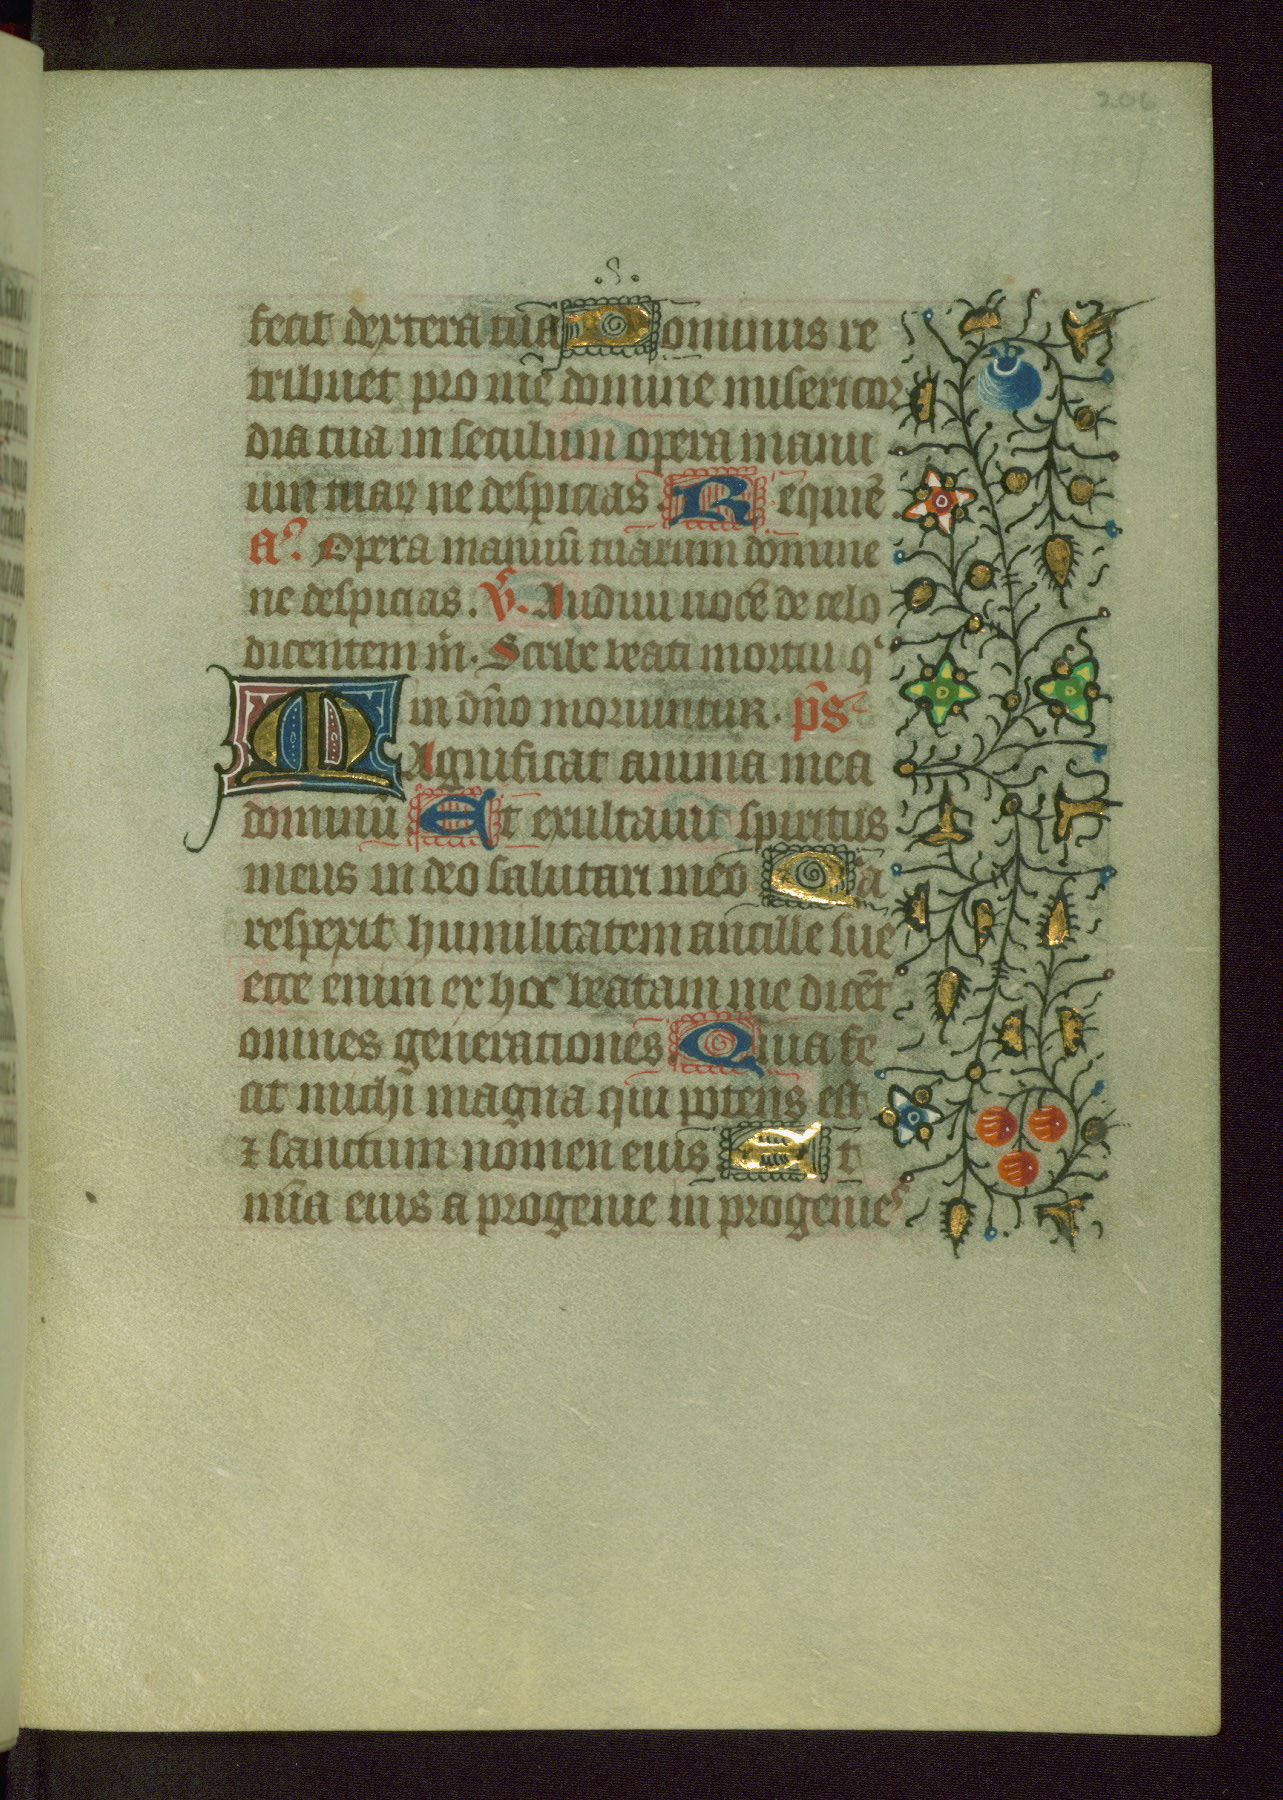 206
.S.
fecit dextera tua Dominus re
tribuet pro me domine misericor
dia tua in seculum opera manu
um tuaꝝ ne despicias Requiē
A᷒. Opera manuū tuarum domine
ne despicias. V̄. Audiui uocē de celo
dicentem m̄. Scribe beati mortui q̄
in dño moriuntur. p̄s
Magnificat anima mea
dominū Et exultauit spiritus
meus in deo salutari meo Qa
respexit humilitatem ancille sue
ecce enim ex hoc beatam me dicēt
omnes generationes Quia fe
cit michi magna qui potens est
⁊ sanctum nomen eius Et
mīa eius a progenie in progenies